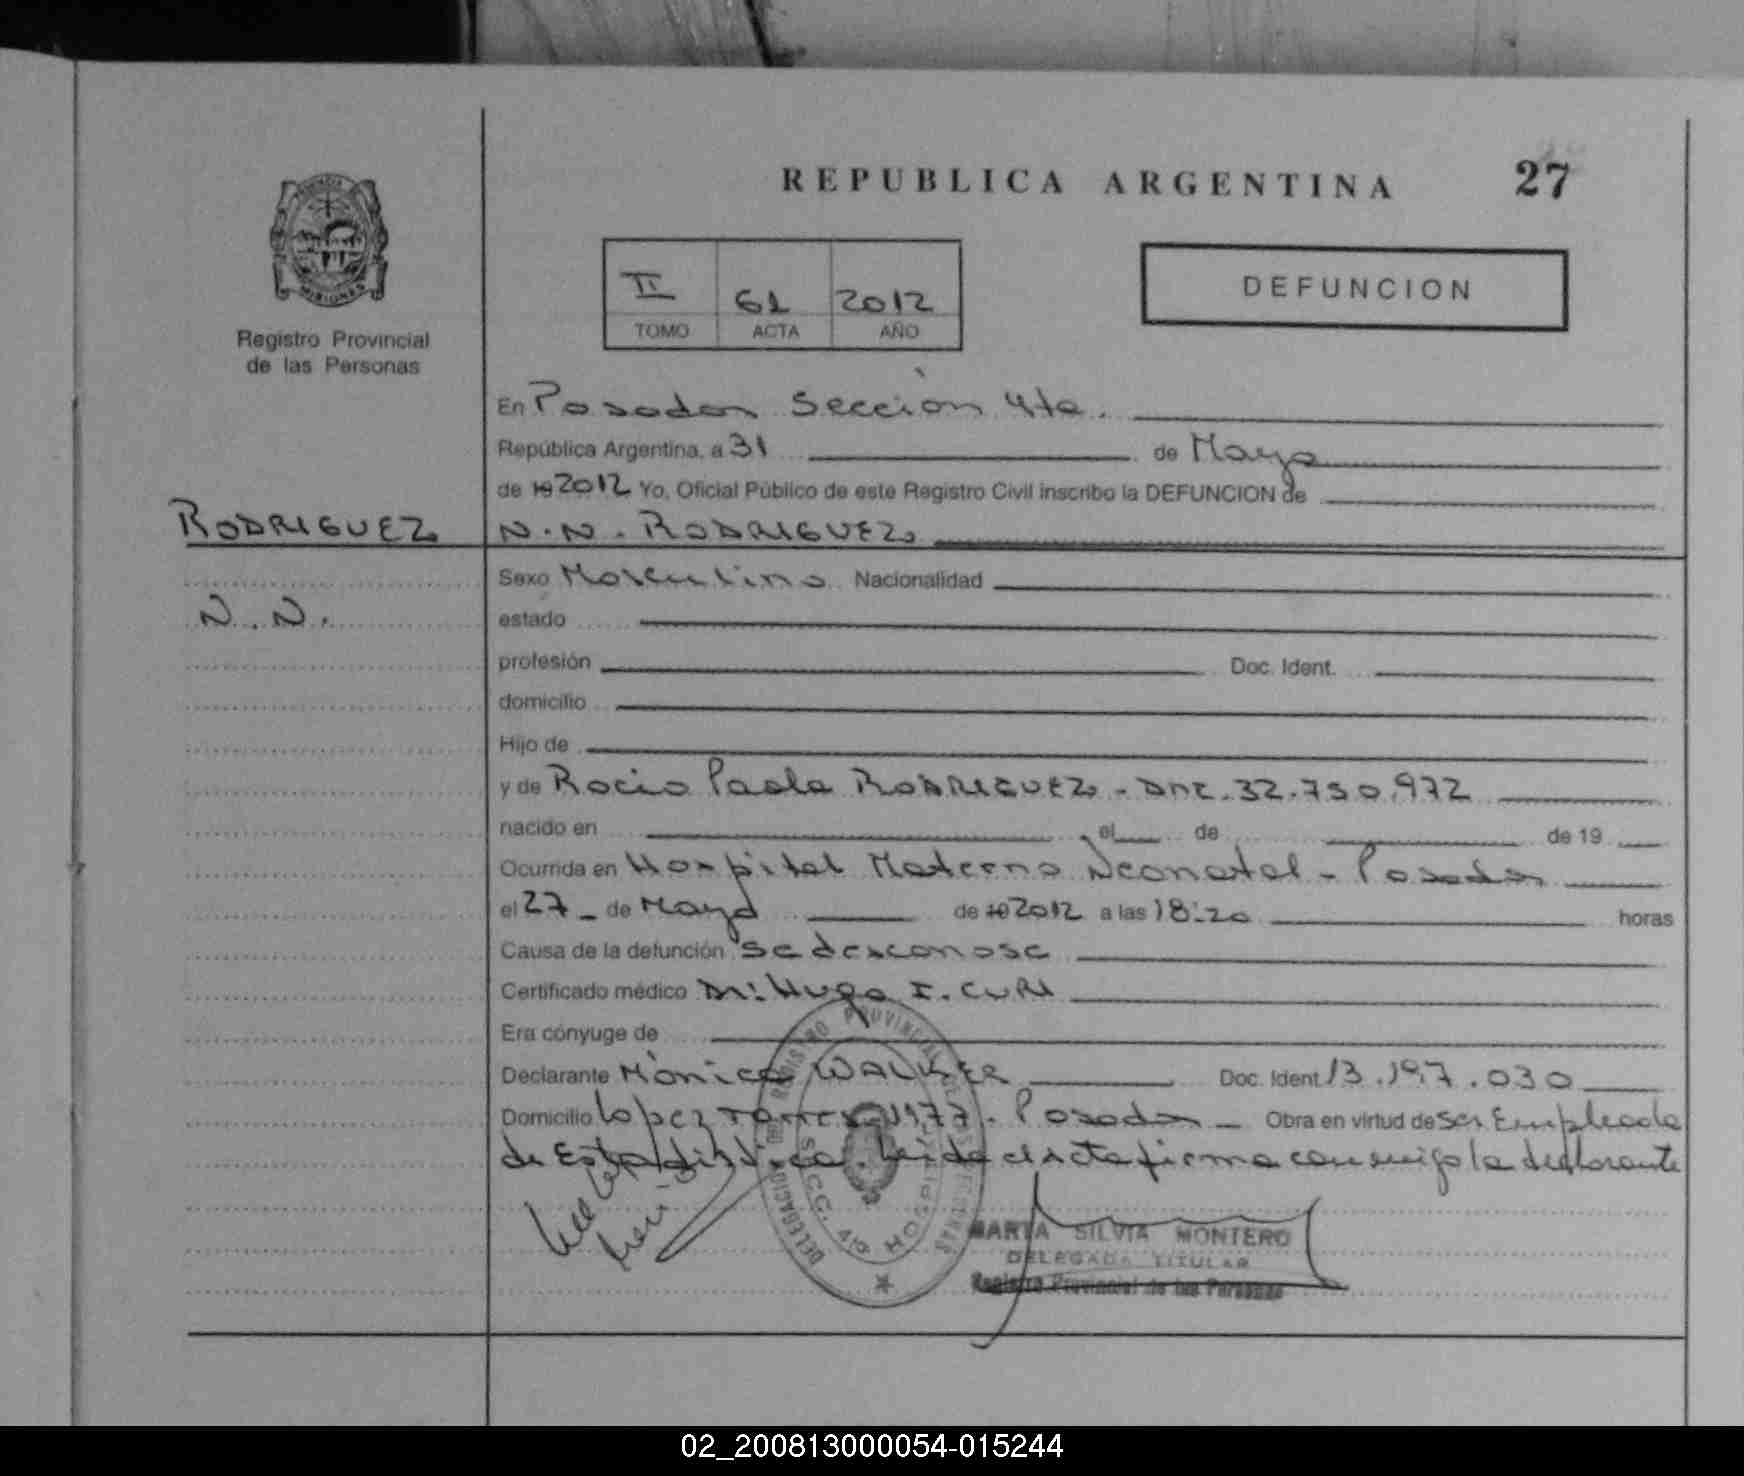 REPUBLICA ARGENTINA 27
PROVINCIA DE MISIONES
Registro Provincial
de las Personas
II 61 2012
TOMO ACTA AÑO
DEFUNCION
En Posadas Sección 4ta.
República Argentina, a 31 de Mayo
de 19 2012 Yo, Oficial Público de este Registro Civil inscribo la DEFUNCION de
RODRIGUEZ N.N. RODRIGUEZ
Sexo Masculino Nacionalidad
N.N. estado
profesión Doc. Ident.
domicilio
Hijo de
y de Rocio Paola RODRIGUEZ - DNI. 32.750.972
nacido en el de de 19
Ocurrida en Hospital Materno Neonatal - Posadas
el 27 - de Mayo de 19 2012 a las 18:20 horas
Causa de la defunción se desconose
Certificado médico Dr: Hugo I. CURI
Era cónyuge de
Declarante Mónica WALKER Doc. Ident 13.197.030
Domicilio Lopez Torres 1177 - Posadas - Obra en virtud de ser Empleada
de Estadistica. Leida el acta firma conmigo la declarante
REGISTRO PROVINCIAL DE LAS PERSONAS
DELEGACION
SECC. 4ta
MARTA SILVIA MONTERO
DELEGADA TITULAR
Registro Provincial de las Personas
02_200813000054-015244